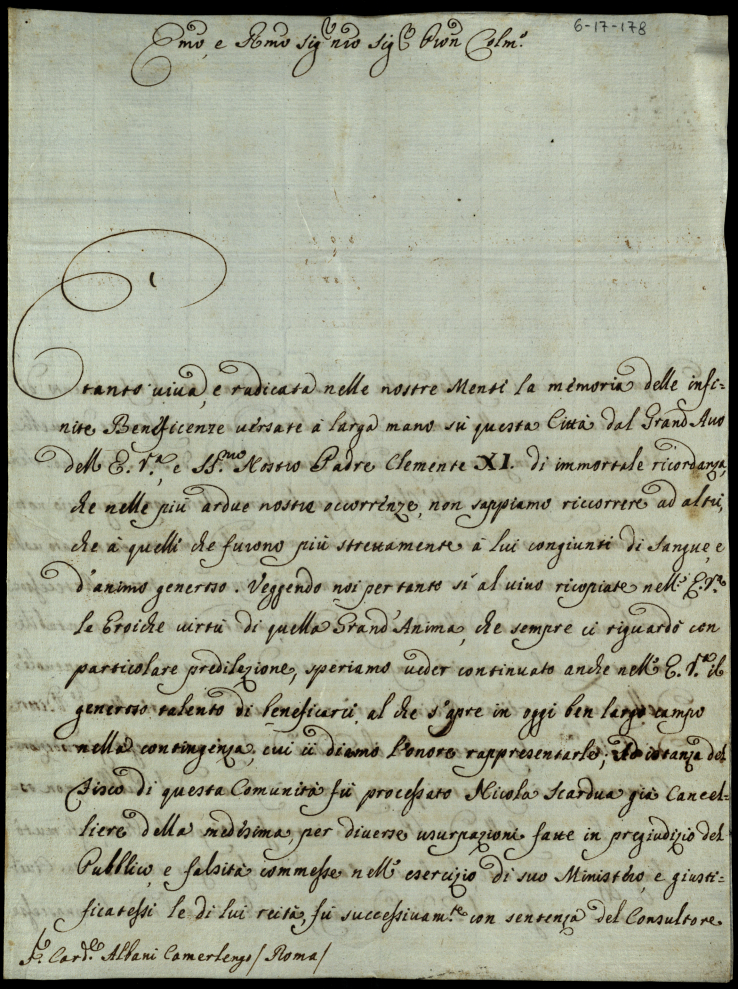 6-17-178
Emo, e Rmo Sigr nro Sigr Pron Colmo
È tanto viva, e radicata nelle nostre Menti la memoria delle infi=
nite Beneficenze versate à larga mano sù questa Città dal Grand'Avo
dell'E. Vra, e SSmo Nostro Padre Clemente XI. di immortale ricordanza,
che nelle più ardue nostre occorrenze, non sappiamo riccorrere ad altri,
che à quelli che furono più strettamente à lui congiunti di Sangue, e
d'animo generoso. Veggendo noi per tanto sì al vivo ricopiate nell'E. Vra
le Eroiche virtù di quella Grand'Anima, che sempre ci riguardò con
particolare predilazione, speriamo veder continuato anche nell'E. Vra il
generoso talento di beneficarci, al che s'apre in oggi ben largo campo
nella contingenza, cui ci diamo l'onore rappresentarle. Ad istanza del
Fisco di questa Comunità fù processato Nicola Scardua già Cancel=
liere della medesima, per diverse usurpazioni fatte in pregiudizio del
Pubblico, e falsità commesse nell'esercizio di suo Ministero, e giusti=
ficatesi le di lui reità, fù successivamte con sentenza del Consultore
Sr. Cardle Albani Camerlengo / Roma /